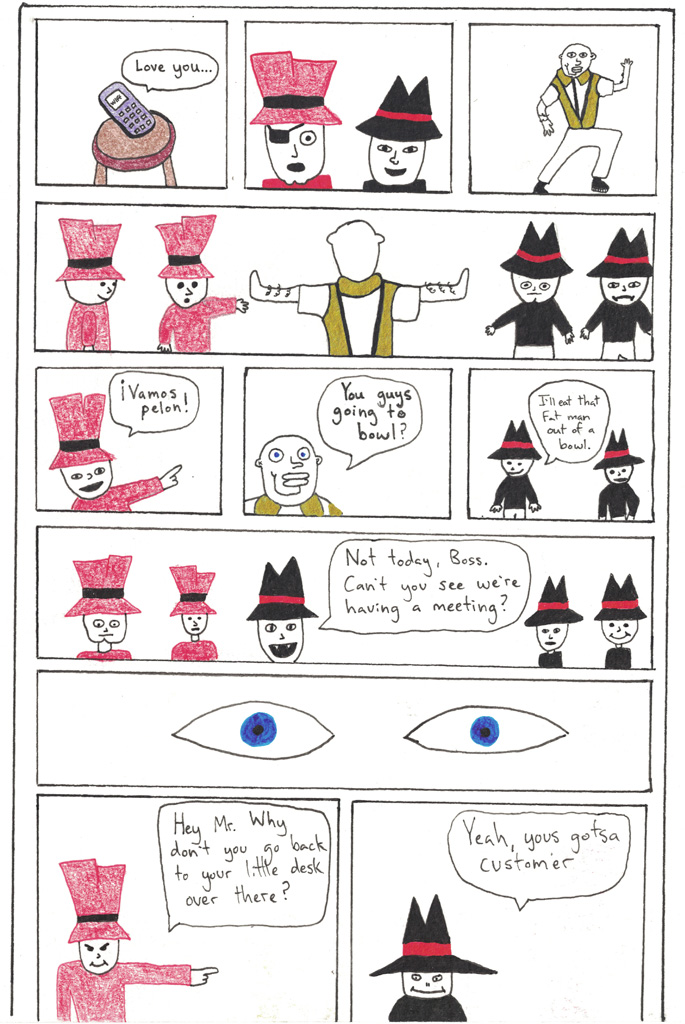 Love you...
¡Vamos
pelon!
You guys
going to
bowl?
I'll eat that
Fat man
out of a
bowl.
Not today, Boss.
Can't you see we're
having a meeting?
Hey Mr. Why
don't you go back
to your little desk
over there?
Yeah, yous gotsa
customer